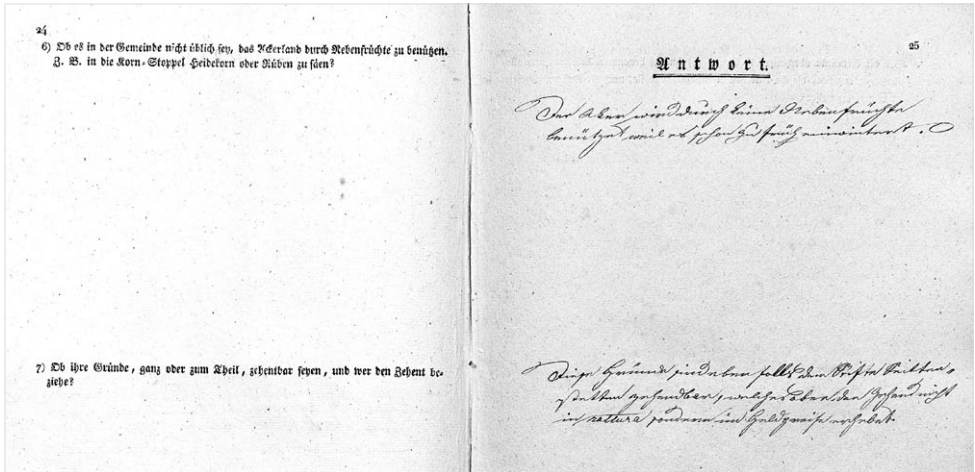 24
6) Ob es in der Gemeinde nicht üblich sey, das Ackerland durch Nebenfrüchte zu benützen.
Z. B. in die Korn-Stoppel Heidekorn oder Rüben zu säen?
7) Ob ihre Gründe, ganz oder zum Theil, zehentbar seyen, und wer den Zehent be-
ziehe?
25
Antwort.
Der Aker wird durch keine Nebenfrüchte
benützet weil es schon zu früh einwintert.
Diese Gründe sind eben falls dem Stifte Seitten,
stetten zehendbar, welches aber den Zehend nicht
in nattura sondern im Geldpreise erhebet.